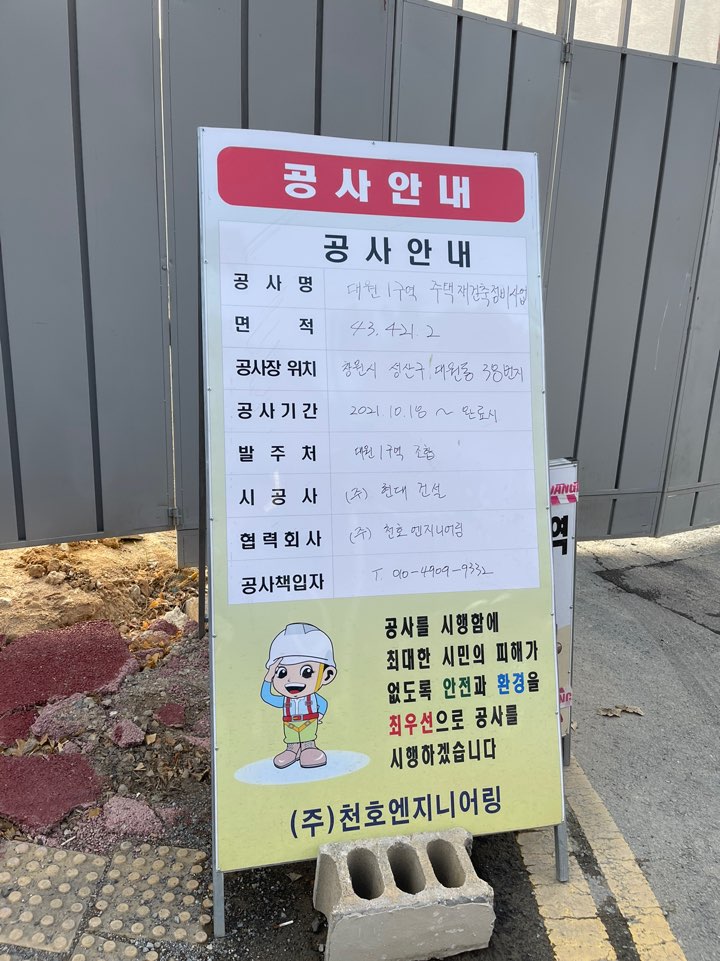 공사안내
공사안내
공사명 대원1구역 주택재건축정비사업
면적 43,421.2
공사장 위치 창원시 성산구 대원동 38번지
공사기간 2021.10.18 ~ 완료시
발주처 대원1구역 조합
시공사 (주) 현대 건설
협력회사 (주) 천호엔지니어링
공사책임자 T. 010-4909-9332
공사를 시행함에
최대한 시민의 피해가
없도록 안전과 환경을
최우선으로 공사를
시행하겠습니다
(주)천호엔지니어링
역